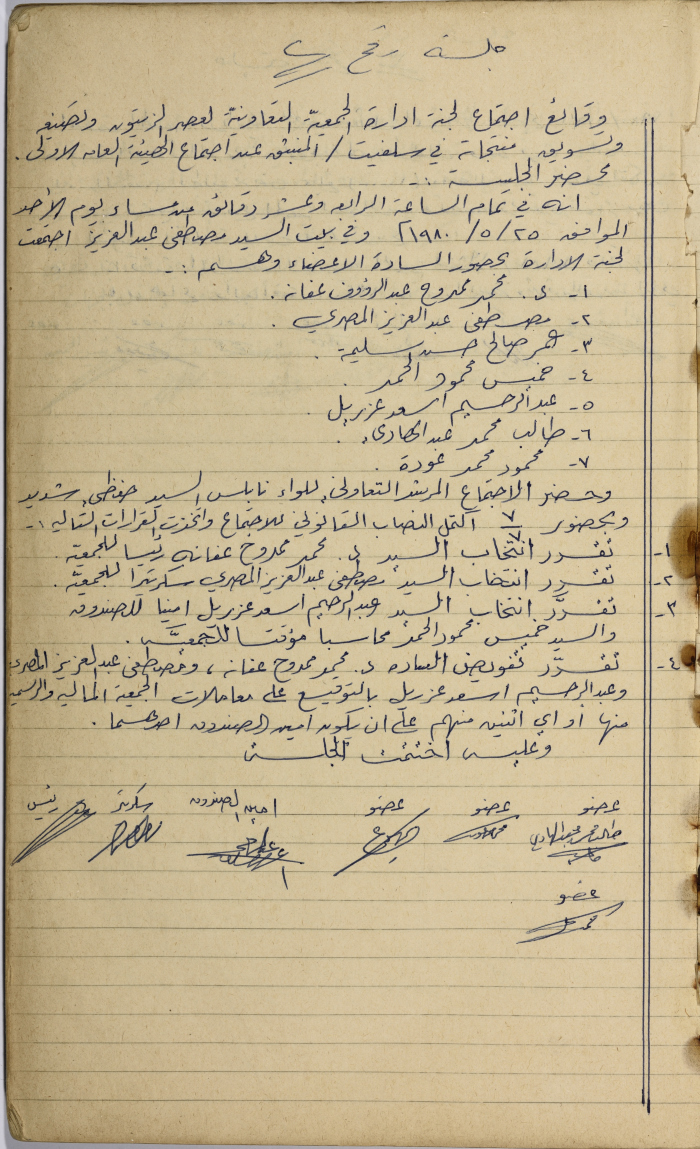 جلسة رقم
وقائع اجتماع لجنة ادارة الجمعية التعاونية لعصر الزيتون وتصنيعه
وتسويق منتجاته في سلفيت / المنبثق عن اجتماع الهيئة العامه الاولى .
محضر الجلسة :-
انه في تمام الساعة الرابعه وعشر دقائق من مساء يوم الأحد
الموافق ٢٥ / ٥ / ١٩٨٠ وفي بيت السيد مصطفى عبدالعزيز اجتمعت
لجنة الادارة بحضور السادة الاعضاء وهم :-
١- د. محمد ممدوح عبدالرؤوف عفانه .
٢- مصطفى عبدالعزيز المصري .
٣- عمر صالح حسن سليمة .
٤- خميس محمود الحمد .
٥- عبدالرحيم اسعد عزريل .
٦- طالب محمد عبدالهادي .
٧- محمود محمد عودة .
وحضر الاجتماع المرشد التعاوني للواء نابلس السيد حفظي شديد
وبحضور ٧/٧ اكتمل النصاب القانوني للاجتماع واتخذت القرارات التاليه :-
١- تقرر انتخاب السيد د. محمد ممدوح عفانه رئيسا للجمعية .
٢- تقرر انتخاب السيد مصطفى عبدالعزيز المصري سكرتيرا للجمعية .
٣- تقرر انتخاب السيد عبدالرحيم اسعد عزريل امينا للصندوق
والسيد خميس محمود الحمد محاسبا مؤقتا للجمعية .
٤- تقرر تفويض الساده د. محمد ممدوح عفانه ، ومصطفى عبدالعزيز المصري
وعبدالرحيم اسعد عزريل بالتوقيع على معاملات الجمعية المالية والرسمية
منها او اي اثنين منهم على ان يكون امين الصندوق احدهما .
وعليه اختتمت الجلسة
عضو عضو عضو امين الصندوق سكرتير رئيس
طالب محمد عبدالهادي
عضو